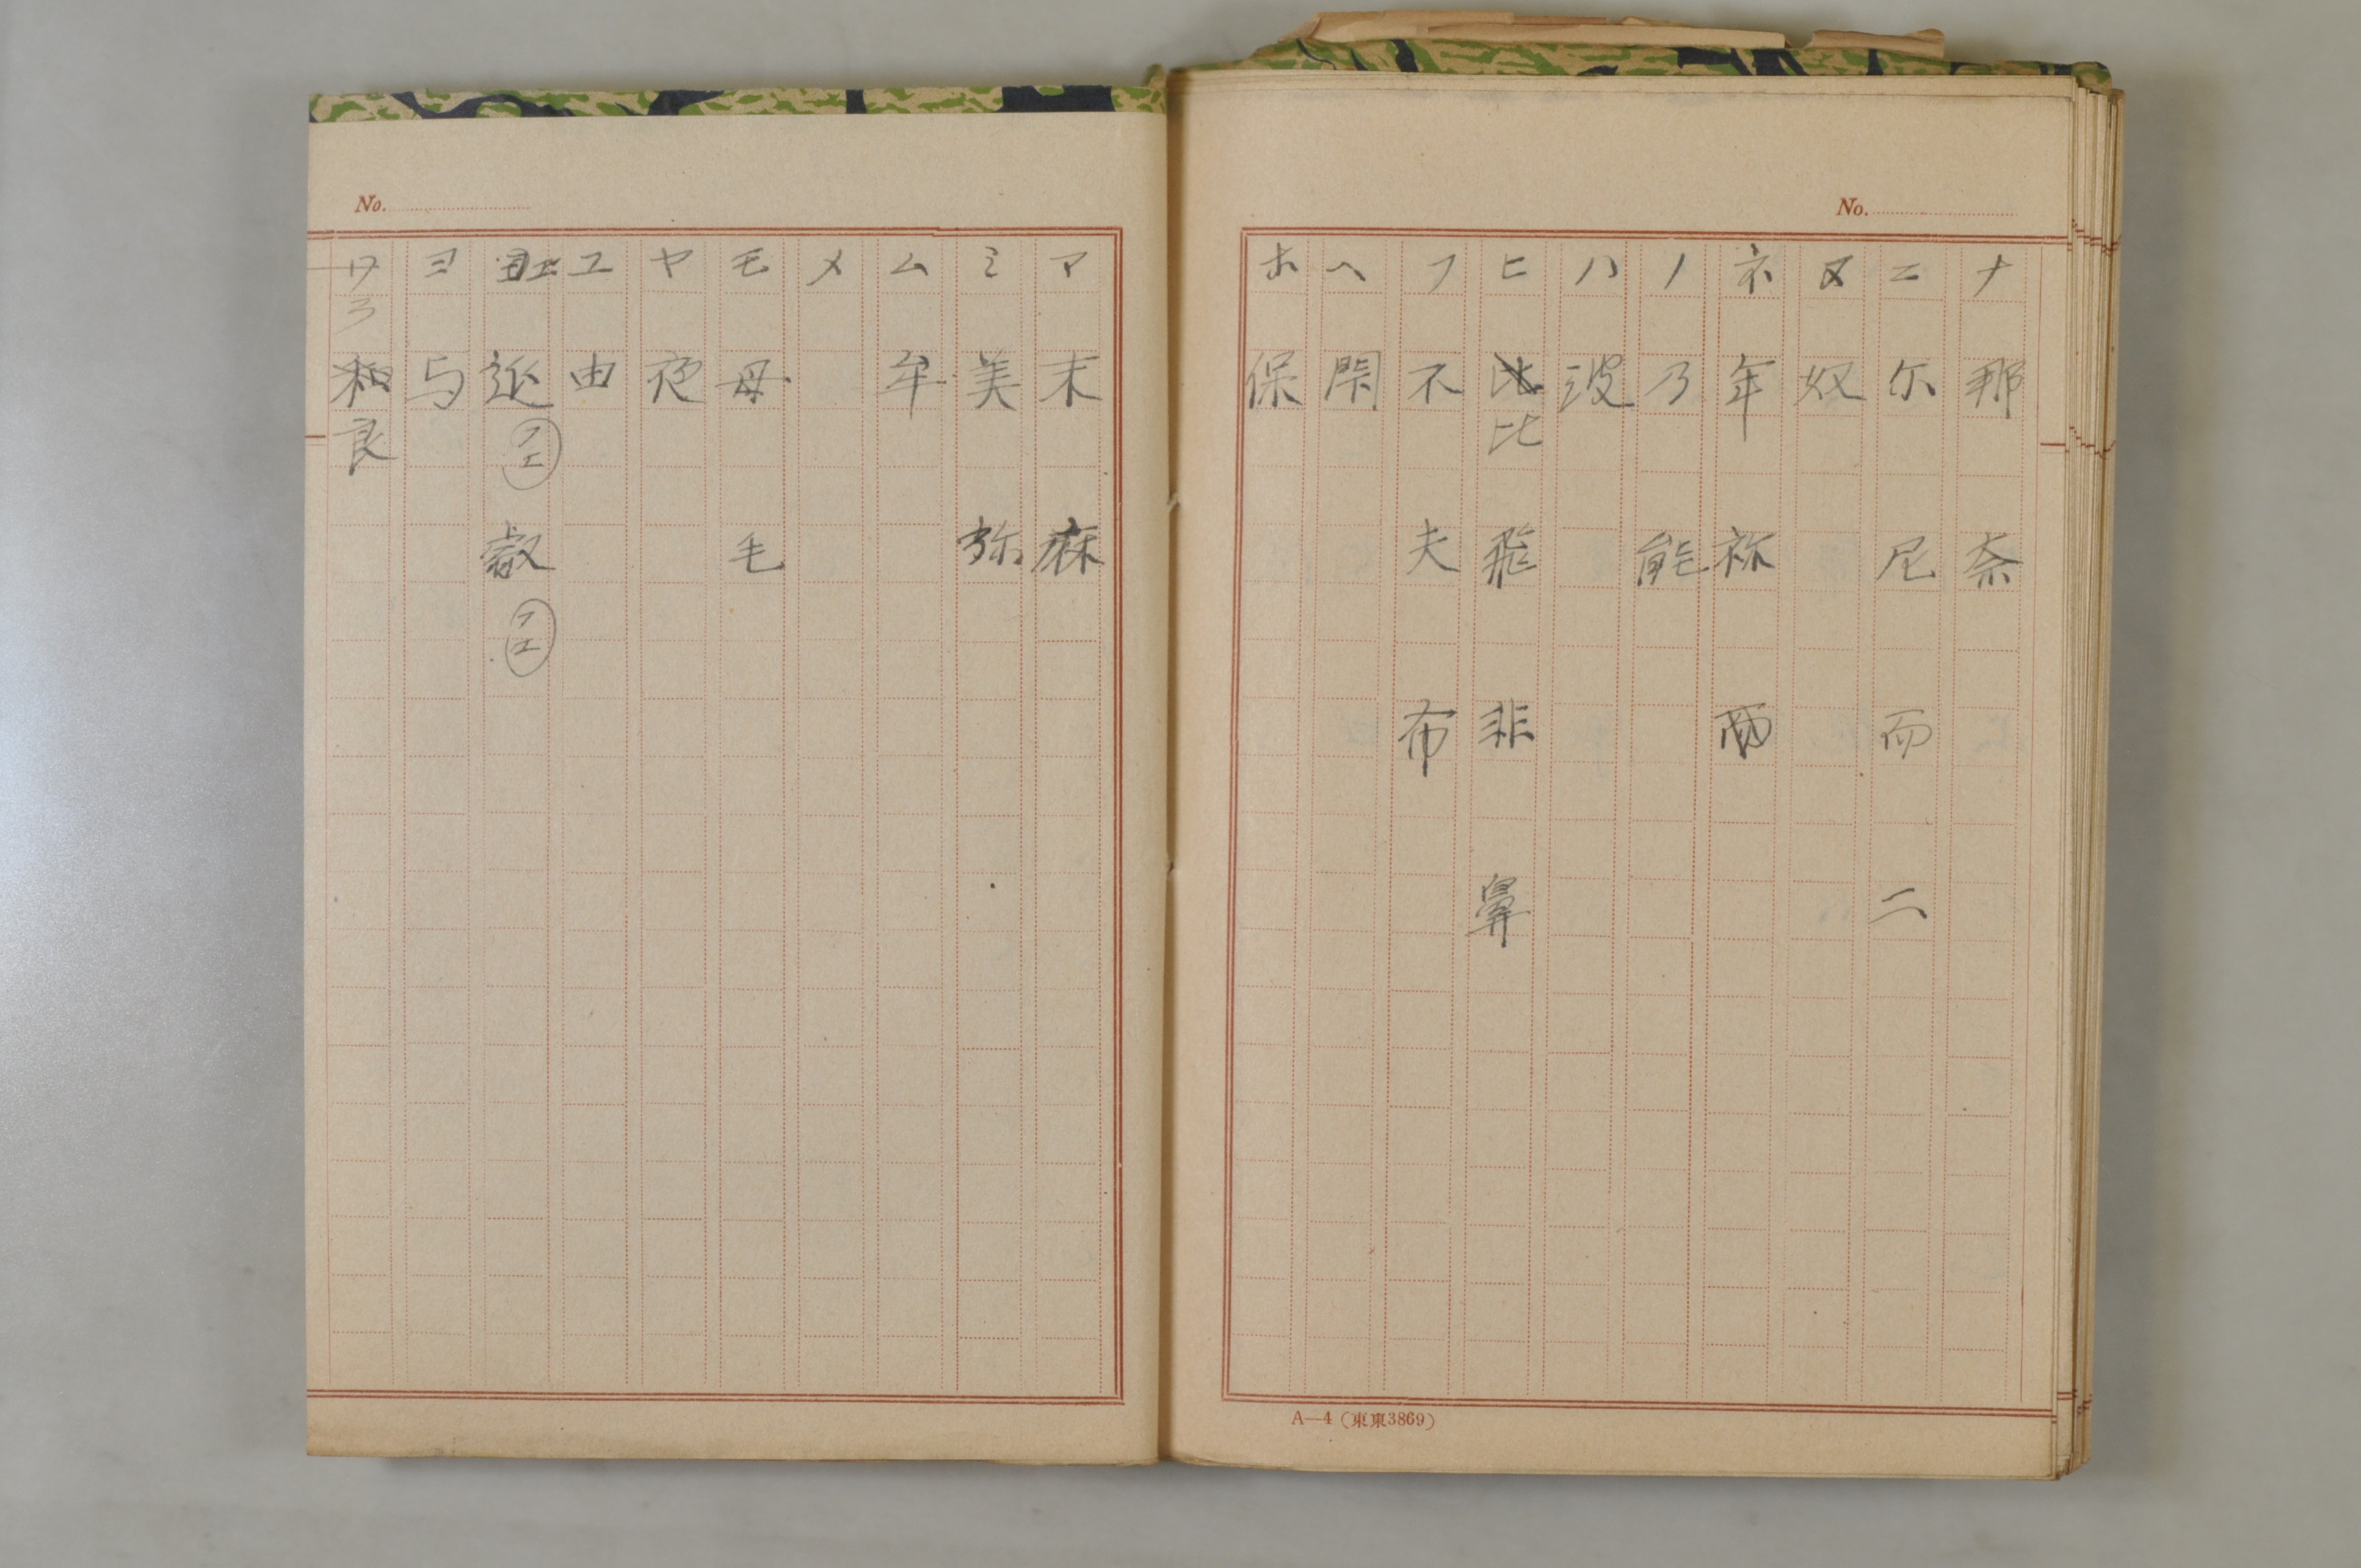 No.
ナ 那 奈
ニ 尓 尼 而 二
ヌ 奴
ネ 年 祢
ノ 乃 能
ハ 波
ヒ 比 飛 非 鼻
フ 不 夫 布
ヘ 閇
ホ 保
A—4 (東東3869)
No.
マ 末 麻
ミ 美 弥
ム 牟
メ
モ 母 毛
ヤ 夜
ユ 由
エ 延 アエ 叡 アエ
ヨ 与
ラ 良